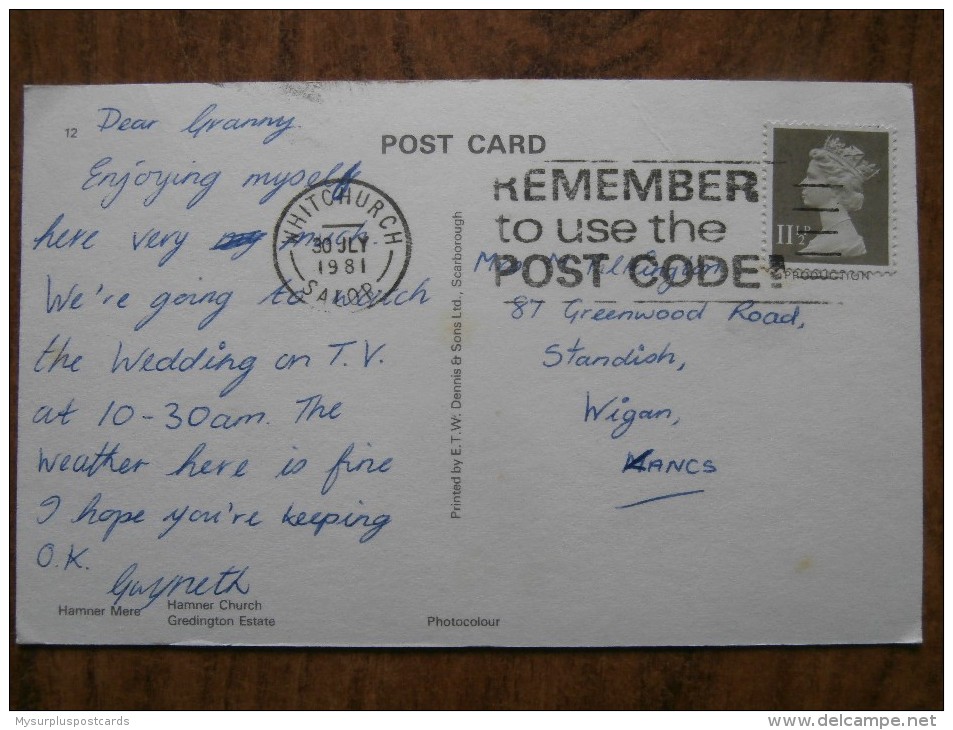 12
Dear Granny.
Enjoying myself
here very much.
We're going to watch
the Wedding on T.V.
at 10-30am. The
weather here is fine
I hope you're keeping
O.K.
Gwyneth
Hamner Mere
Hamner Church
Gredington Estate
POST CARD
WHITCHURCH
30 JLY
1981
SALOP
Printed by E.T.W. Dennis & Sons Ltd., Scarborough
Photocolour
REMEMBER
to use the
POST CODE!
11½P
PRODUCTION
Mrs M Pilkington
87 Greenwood Road,
Standish,
Wigan,
LANCS
Mysurpluspostcards
www.delcampe.net